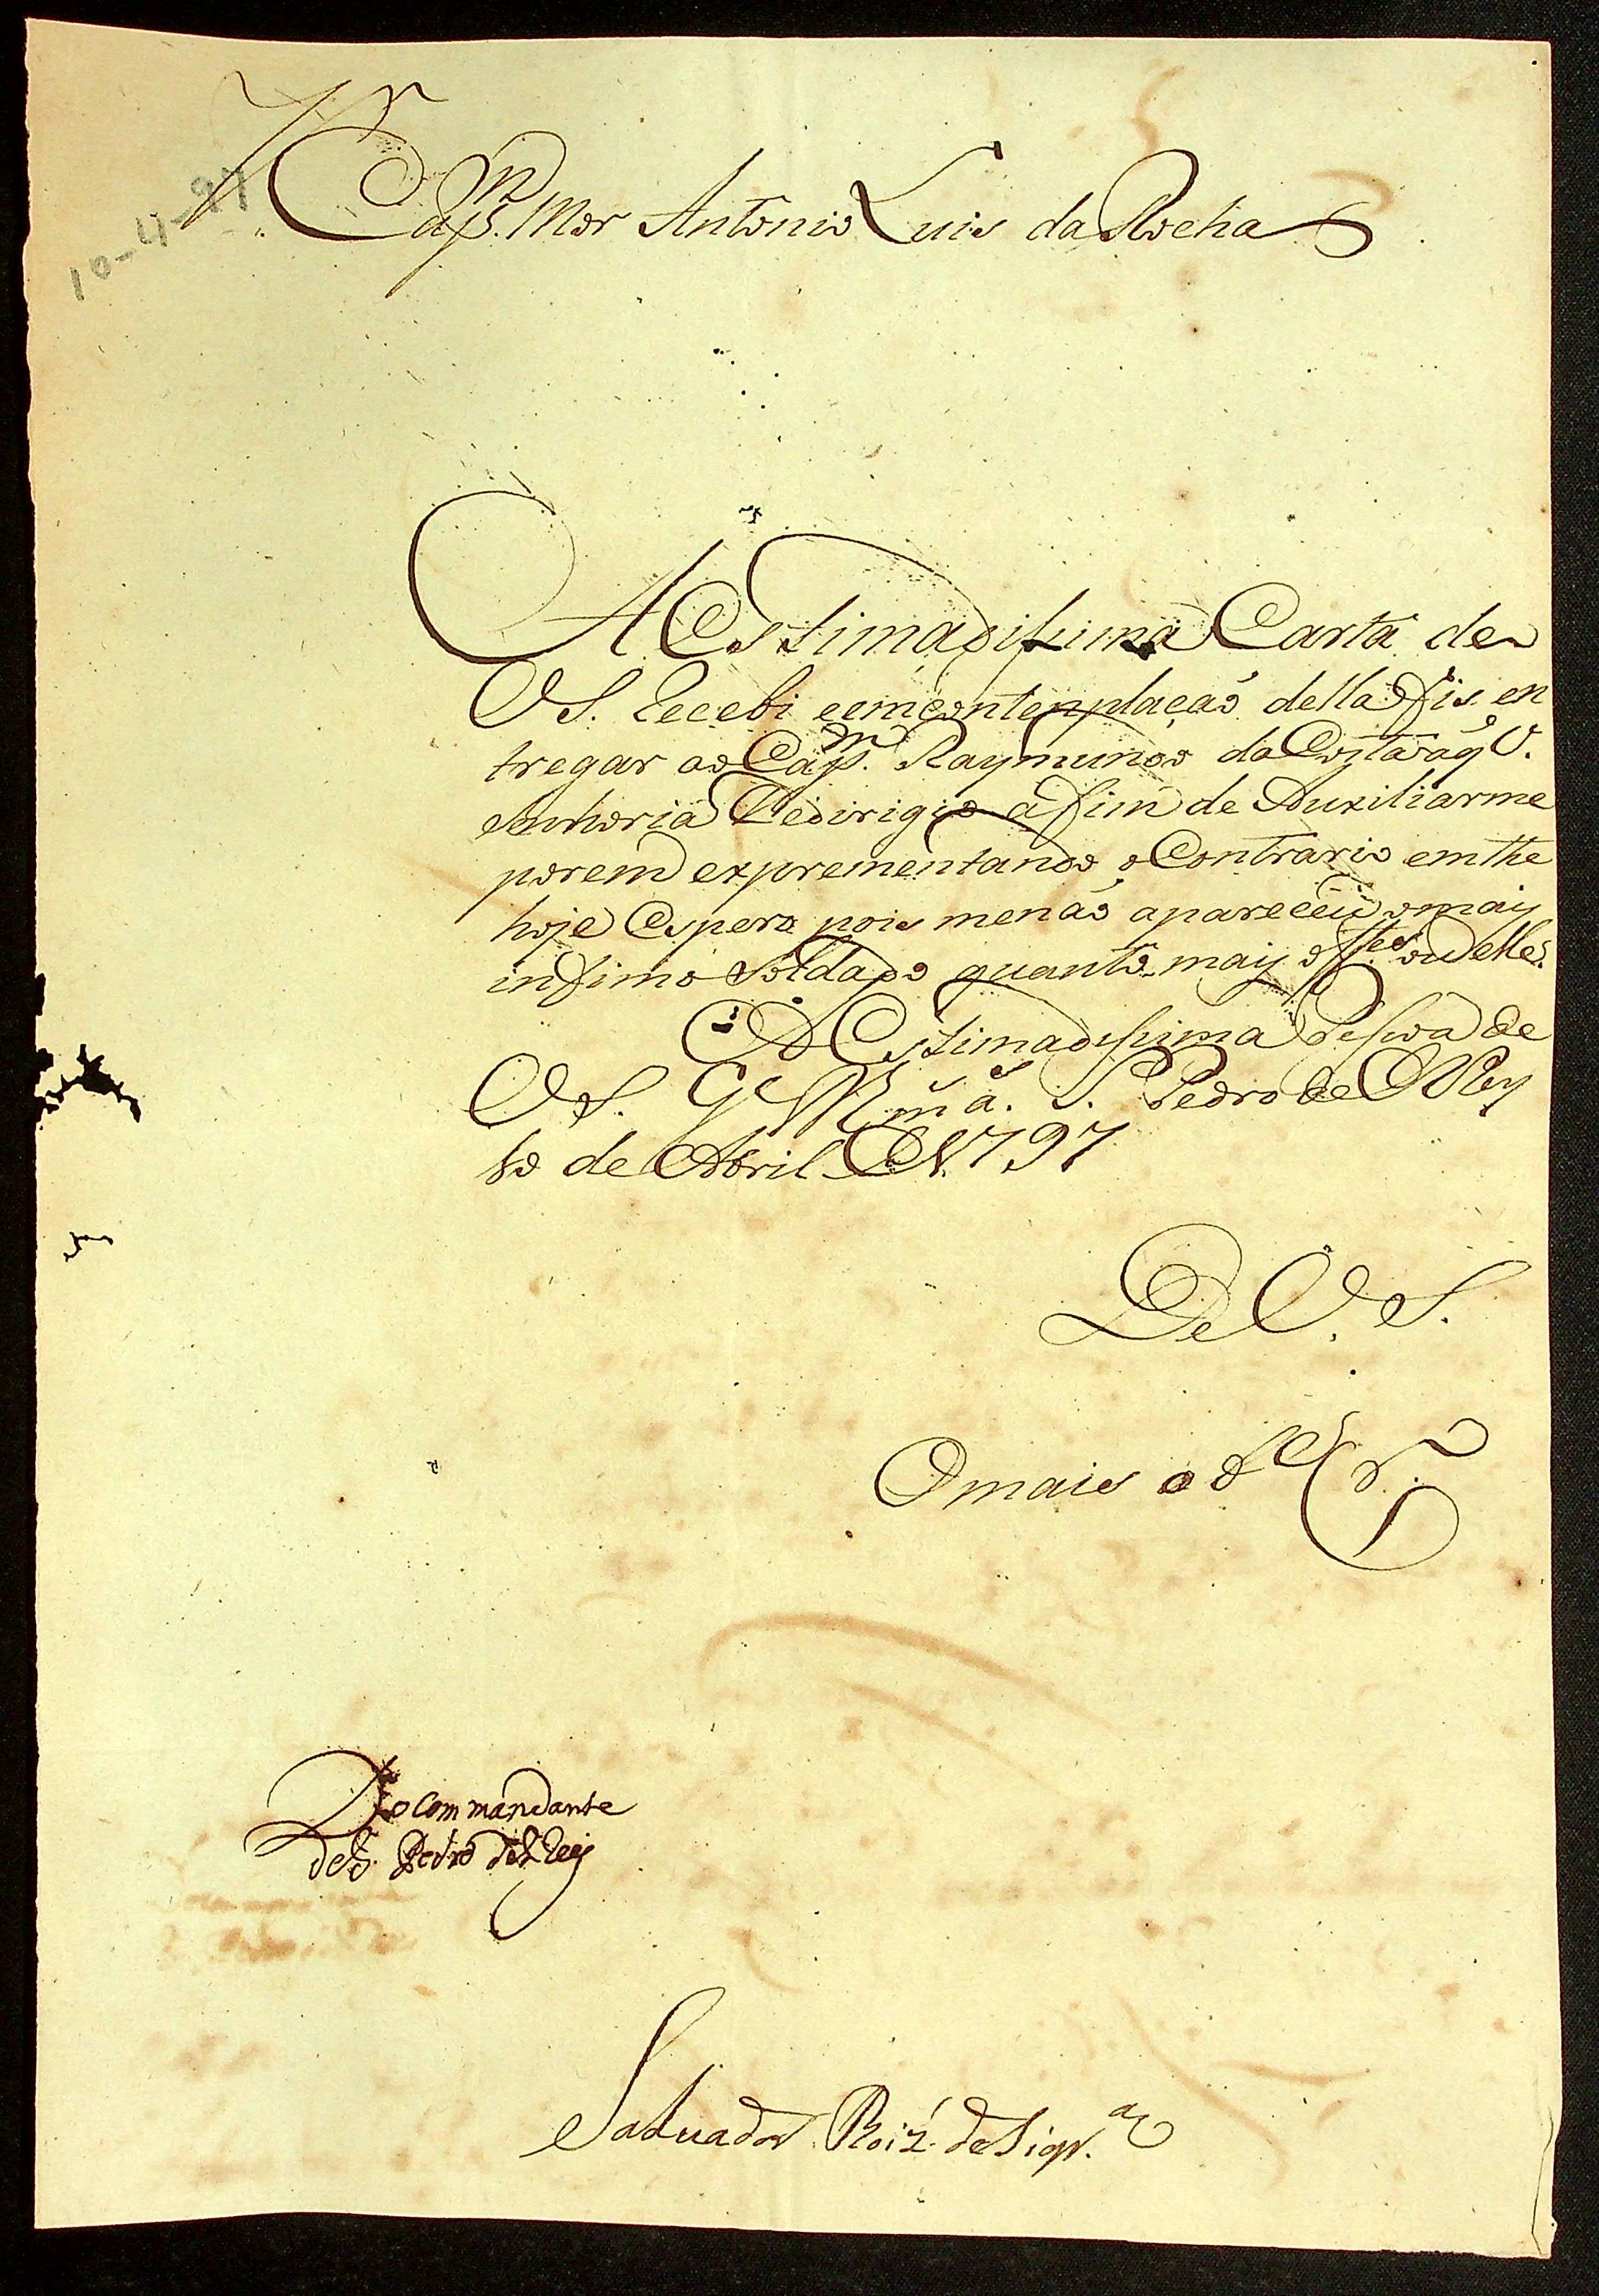 10-4-97
Sr. Capᵐ. Mor Antonio Luis da Rocha
A Estimadissima Carta de
V S. Recebi e em contenplaçaõ della o fis en
tregar ao Capᵐ. Raymundo da Costa o aq̃ V.
Senhoria Le dirigio a fim de Auxiliarme
porem exprementando o Contrario em the
hoje Espero pois me naõ apareceu o mais
infimo Soldado quanto mais Off.ᵉˢ ou elle.
A Estimadissima Pessoa de
V S. Gᵉ Ds. m.ˢ a.ˢ S. Pedro de ElRey
10 de Abril de 1797
De V. S.
O mais a S.
Do Commandante
de S. Pedro del Rey
Salvador Roiz de Siqr.ᵃ